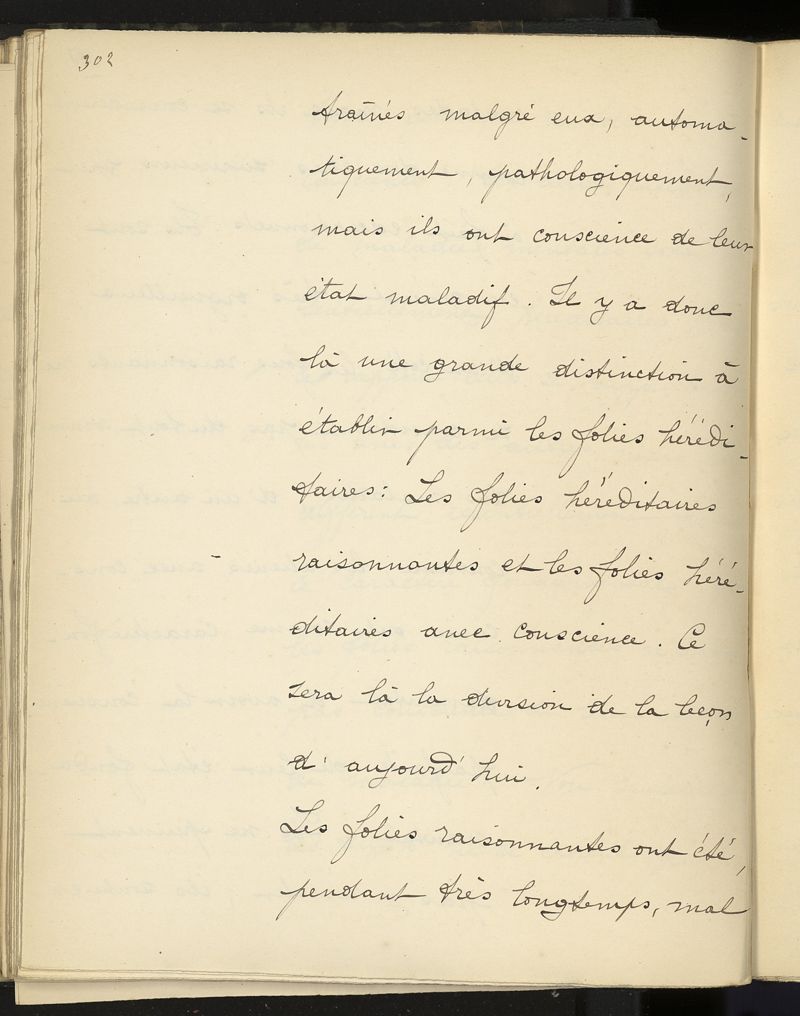 302
traînés malgré eux, automa-
tiquement, pathologiquement,
mais ils ont conscience de leur
état maladif. Il y a donc
là une grande distinction à
établir parmi les folies hérédi-
taires: Les folies héréditaires
raisonnantes et les folies héré-
ditaires avec conscience. Ce
sera là la division de la leçon
d'aujourd'hui.
Les folies raisonnantes ont été,
pendant très longtemps, mal